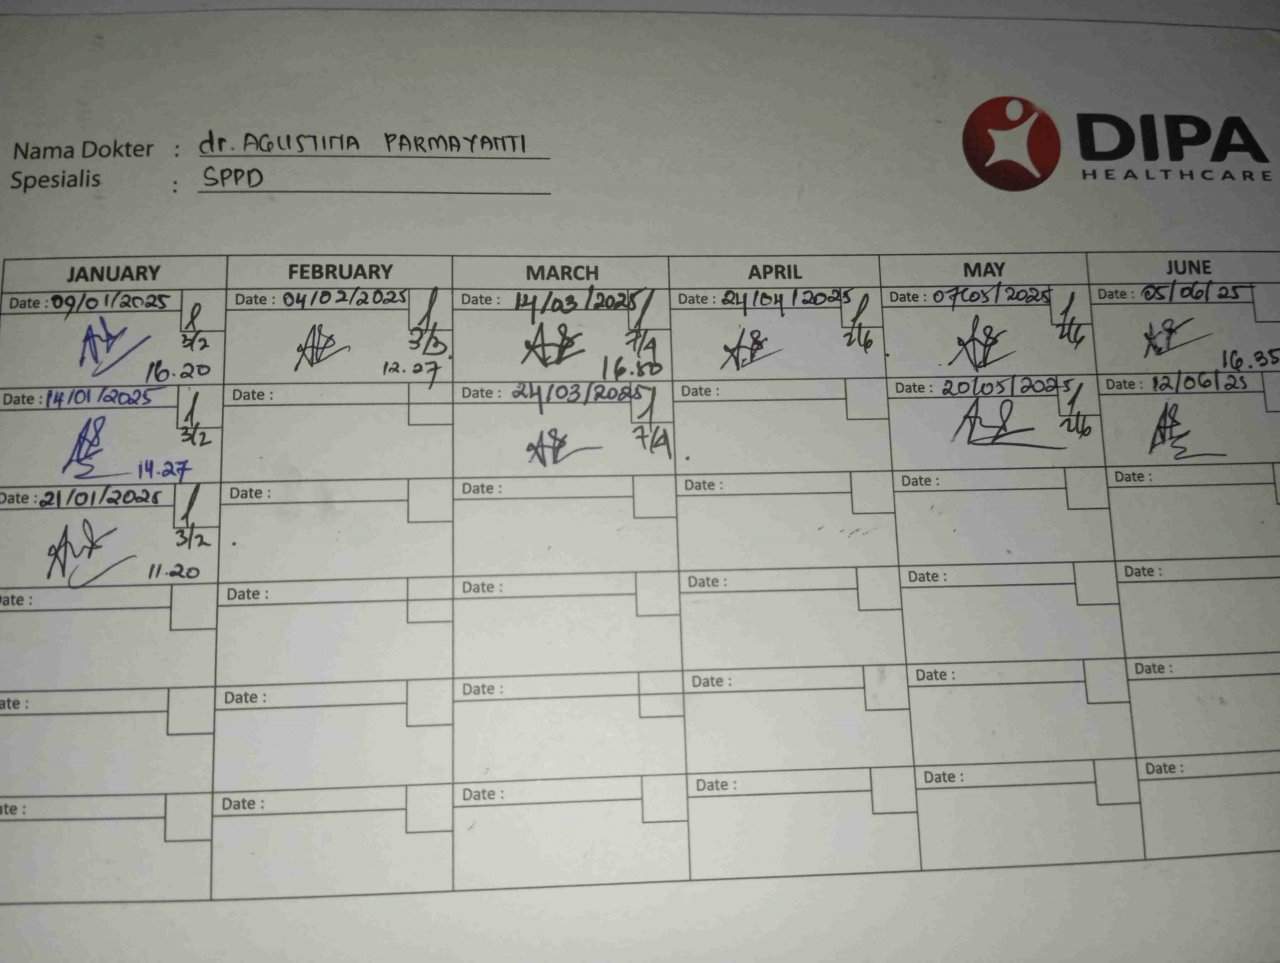 DIPA
HEALTHCARE
Nama Dokter : dr. AGUSTINA PARMAYANTI
Spesialis : SPPD
JANUARY FEBRUARY MARCH APRIL MAY JUNE
Date : 09/01/2025 Date : 04/02/2025 Date : 14/03/2025 Date : 24/04/2025 Date : 07/05/2025 Date : 05/06/25
3/2 3/3 7/4 2/6 2/6
16.20 12.27 16.50 16.35
Date : 14/01/2025 Date : Date : 24/03/2025 Date : Date : 20/05/2025 Date : 12/06/25
3/2 7/4 2/6
14.27
Date : 21/01/2025 Date : Date : Date : Date : Date :
3/2
11.20
ate : Date : Date : Date : Date : Date :
ate : Date : Date : Date : Date : Date :
te : Date : Date : Date : Date : Date :